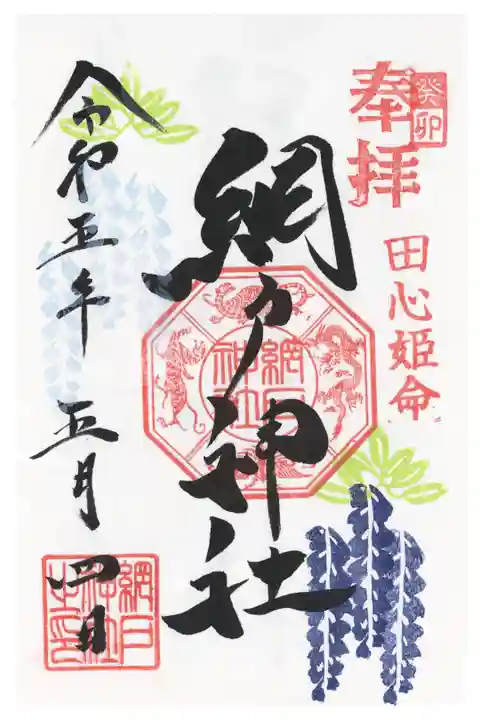 癸卯
奉拝
田心姫命
網戸神社
網戸
神社
令和五年五月四日
網戸
神社
之印